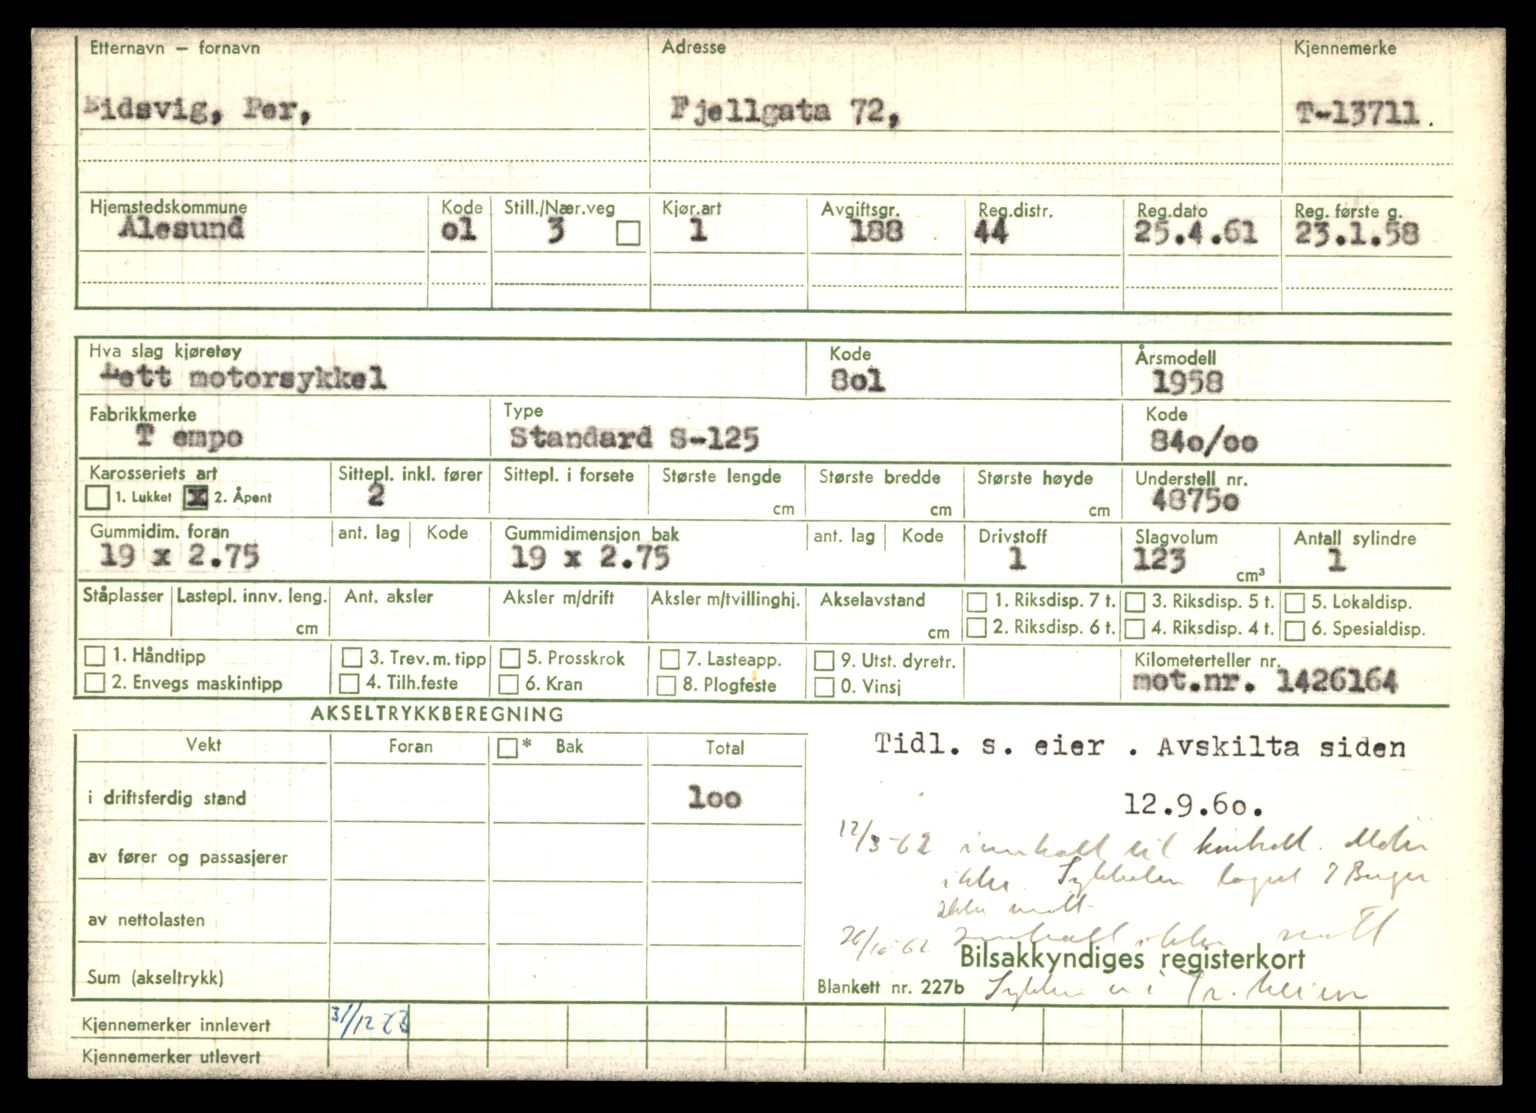 Etternavn — fornavn Adresse Kjennemerke
Eidsvig, Per, Fjellgata 72, T-13711.
Hjemstedskommune Kode Still./Nær.veg Kjør.art Avgiftsgr. Reg.distr. Reg.dato Reg. første g.
Ålesund o1 3 1 188 44 25.4.61 23.1.58
Hva slag kjøretøy Kode Årsmodell
Lett motorsykkel 8o1 1958
Fabrikkmerke Type Kode
T empo Standard S-125 84o/oo
Karosseriets art Sittepl. inkl. fører Sittepl. i forsete Største lengde Største bredde Største høyde Understell nr.
1. Lukket x 2. Åpent 2 cm cm cm 4875o
Gummidim. foran ant. lag Kode Gummidimensjon bak ant. lag Kode Drivstoff Slagvolum Antall sylindre
19 x 2.75 19 x 2.75 1 123 cm³ 1
Ståplasser Lastepl. innv. leng. Ant. aksler Aksler m/drift Aksler m/tvillinghj. Akselavstand 1. Riksdisp. 7 t. 3. Riksdisp. 5 t. 5. Lokaldisp.
cm cm 2. Riksdisp. 6 t. 4. Riksdisp. 4 t. 6. Spesialdisp.
1. Håndtipp 3. Trev. m. tipp 5. Prosskrok 7. Lasteapp. 9. Utst. dyretr. Kilometerteller nr.
2. Envegs maskintipp 4. Tilh.feste 6. Kran 8. Plogfeste 0. Vinsj mot.nr. 1426164
AKSELTRYKKBEREGNING
Vekt Foran * Bak Total
Tidl. s. eier . Avskilta siden
i driftsferdig stand 1oo
12.9.6o.
12/3-62 innkalt til kontroll. Møter
av fører og passasjerer
ikke. Sykkelen lagret
ikke møtt
av nettolasten
26/10-62 Innkalt ikke møtt
Bilsakkyndiges registerkort
Sum (akseltrykk)
Blankett nr. 227b Sykkelen er i
Kjennemerker innlevert 31/12 63
Kjennemerker utlevert